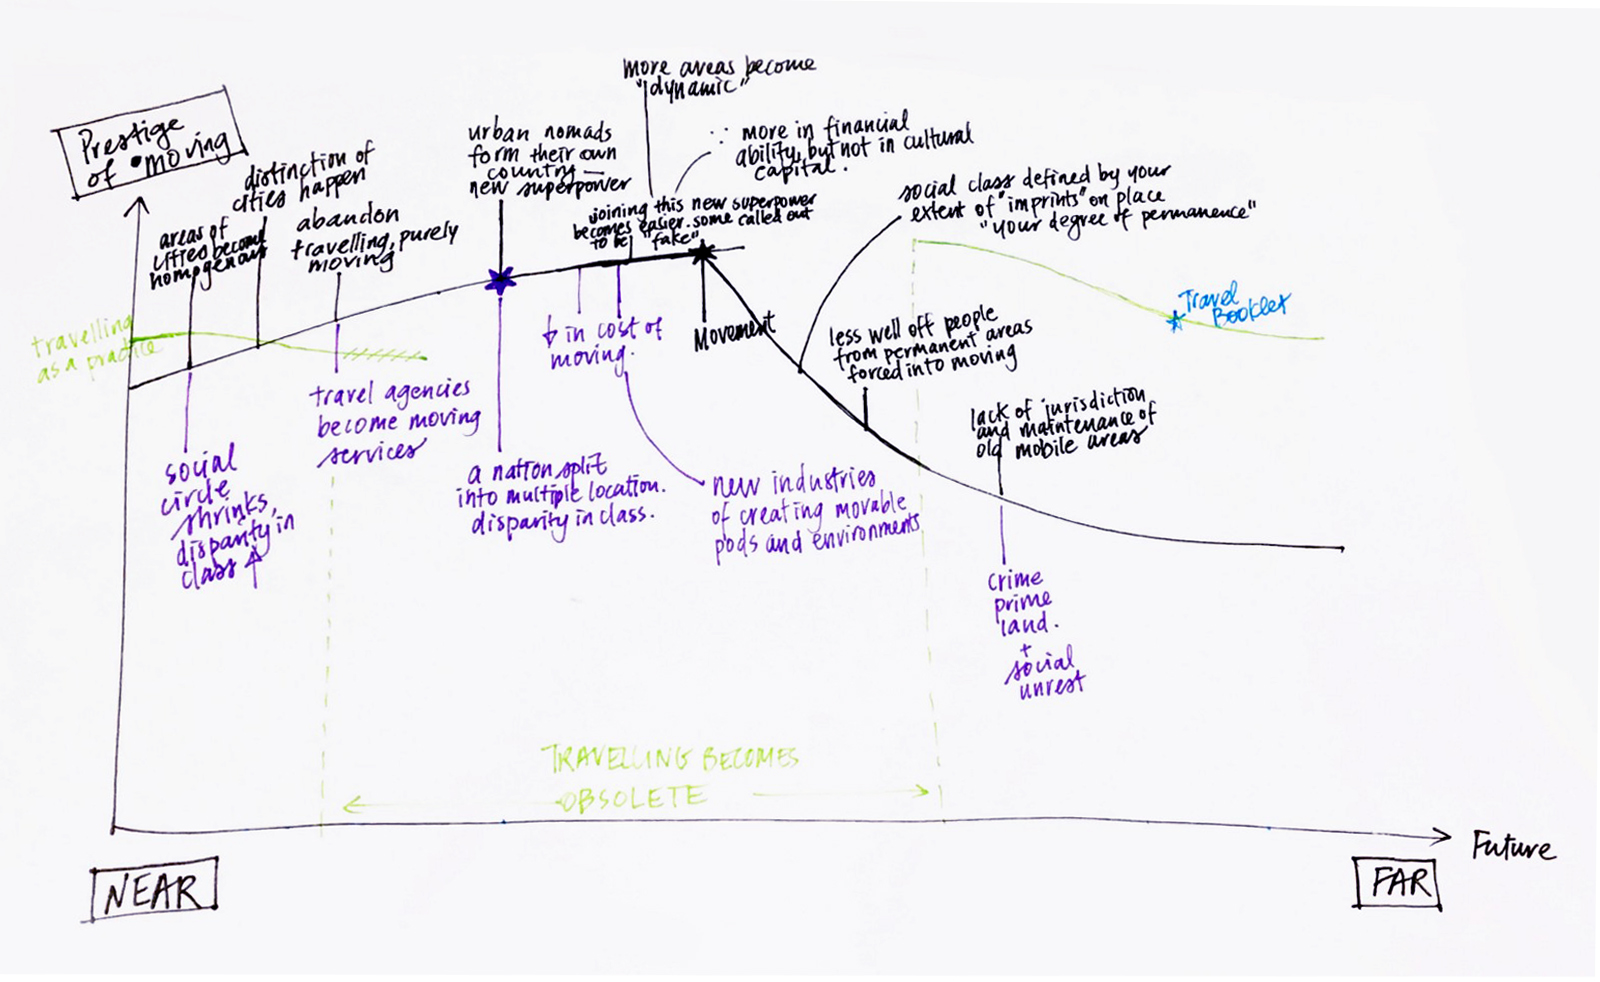 Prestige
of moving
areas of
cities become
homogenous
distinction of
cities happen
abandon
travelling, purely
moving
urban nomads
form their own
country —
new superpower
more areas become
"dynamic"
∵ more in financial
ability, but not in cultural
capital.
joining this new superpower
becomes easier. some called out
to be "fake"
Movement
social class defined by your
extent of "imprints" on place
"your degree of permanence"
less well off people
from permanent areas
forced into moving
lack of jurisdiction
and maintenance of
old mobile areas
travelling
as a practice
Travel
Booklet
social
circle
shrinks,
disparity in
class ↑
travel agencies
become moving
services
a nation split
into multiple location.
disparity in class.
↓ in cost of
moving.
new industries
of creating movable
pods and environments
crime
prime
land.
+
social
unrest
TRAVELLING BECOMES
OBSOLETE
Future
NEAR
FAR